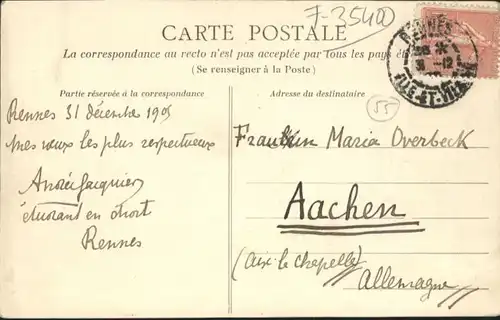 F-35400
CARTE POSTALE
La correspondance au recto n'est pas acceptée par tous les pays
(Se renseigner à la Poste)
RENNES
ILLE-ET-VILAINE
Partie réservée à la correspondance
Adresse du destinataire
55
Rennes 31 décembre 1905
mes vœux les plus respectueux
André Jacquier
étudiant en droit
Rennes
Maria Overbeck
Aachen
(Aix-la chapelle)
Allemagne